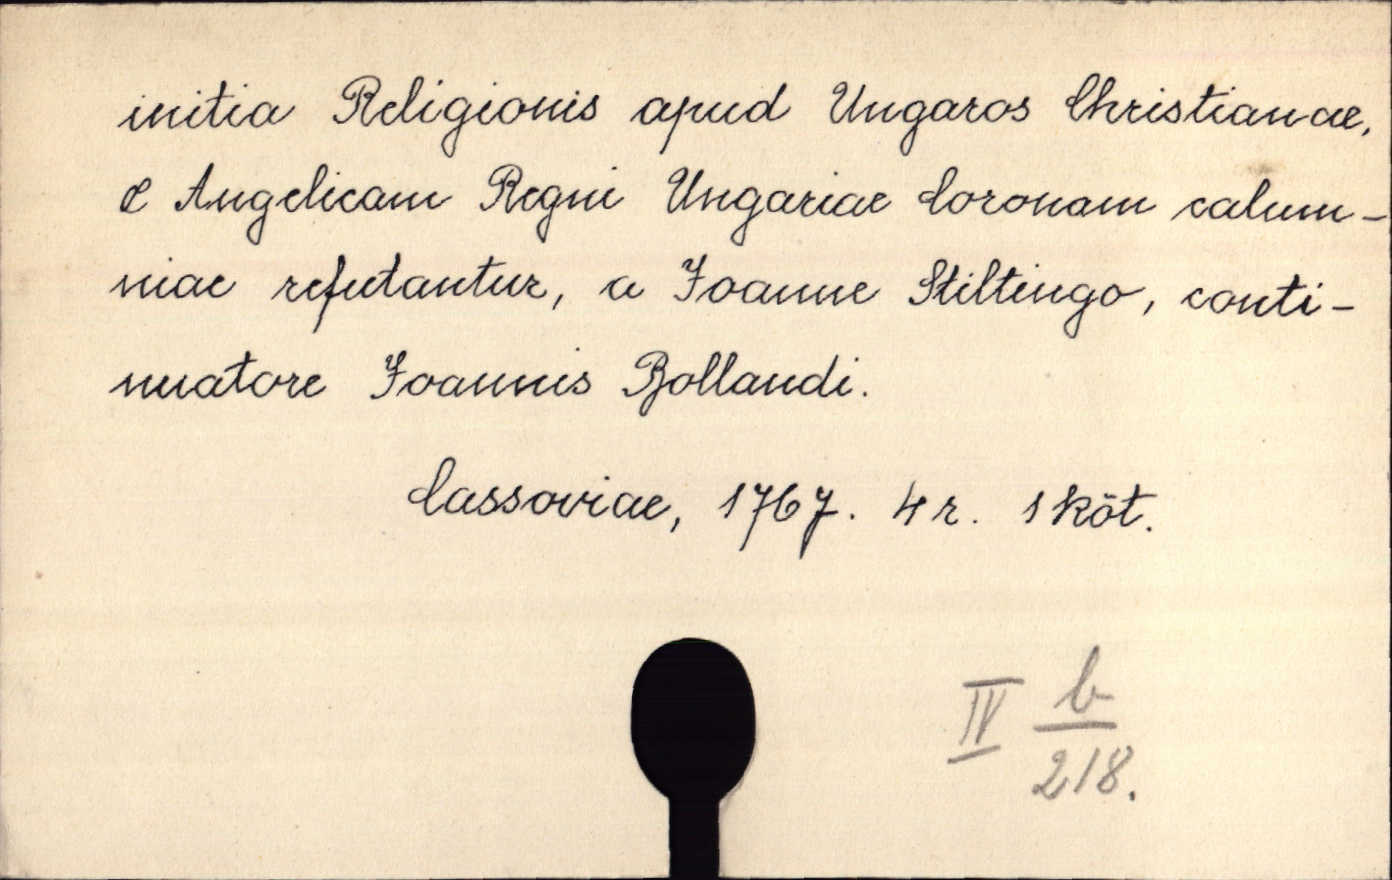 initia Religionis apud Ungaros Christianae,
& Angelicam Regni Ungariae Coronam calum-
niae refutantur, a Joanne Stiltingo, conti-
nuatore Joannis Bollandi.
Cassoviae, 1767. 4r. 1 köt.
IV b
218.